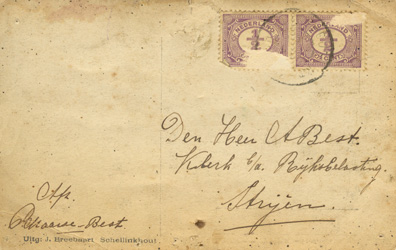 NEDERLAND NEDERLAND
½ ½
Den Heer A Best.
Klerk b/a. Rijksbelasting.
Strijen.
Afz.
Best
Uitg: J. Breebaart Schellinkhout